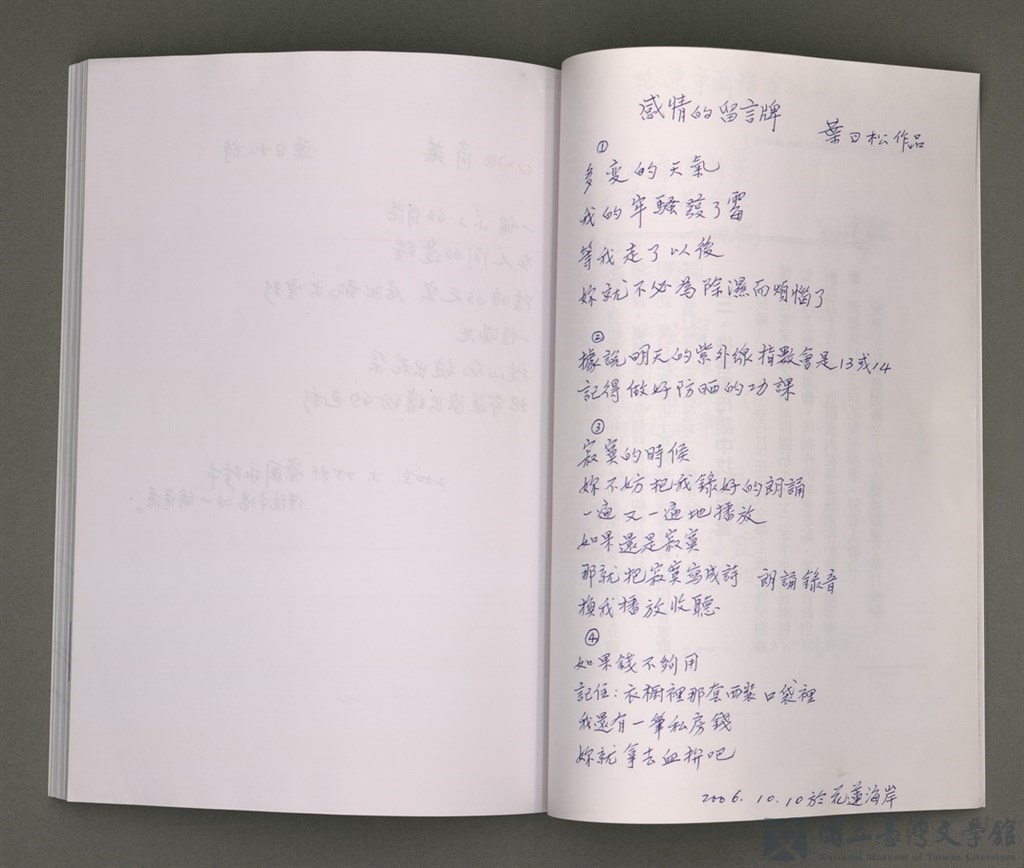 感情的留言牌
葉日松作品
①
多變的天氣
我的牢騷發了霉
等我走了以後
妳就不必為除濕而煩惱了
②
據說明天的紫外線指數會是13或14
記得做好防晒的功課
③
寂寞的時候
妳不妨把我錄好的朗誦
一遍又一遍地播放
如果還是寂寞
那就把寂寞寫成詩 朗誦錄音
換我播放收聽
④
如果錢不夠用
記住:衣櫥裡那套西裝口袋裡
我還有一筆私房錢
妳就拿去血拚吧
2006.10.10於花蓮海岸
國立臺灣文學館
National Museum of Taiwan Literature